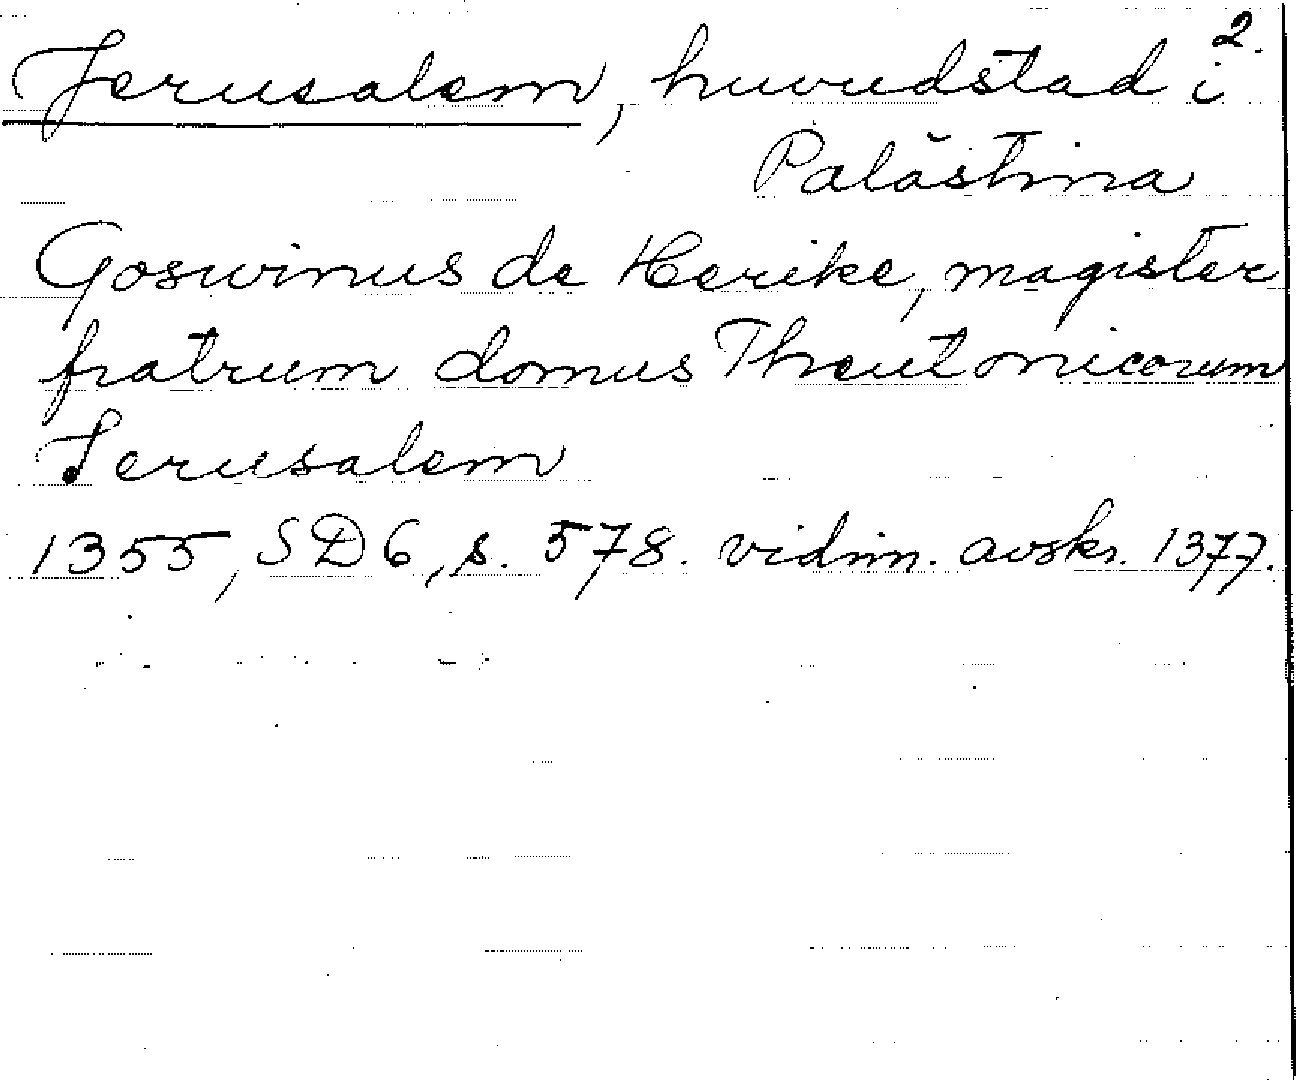 2.
Jerusalem, huvudstad i
Palästina
Goswinus de Herike, magister
fratrum domus Theutonicorum
Jerusalem
1355, SD 6, s. 578. vidim. avskr. 1377.